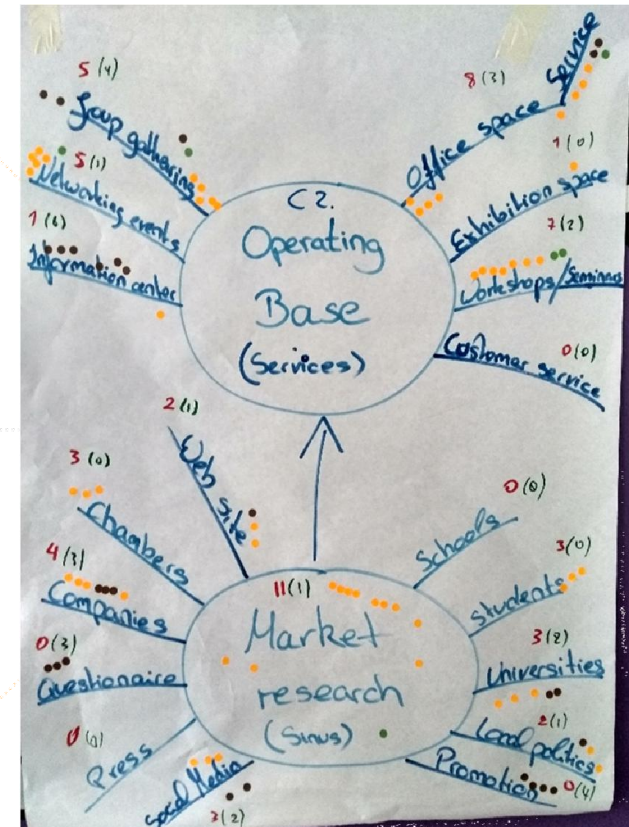 5 (4)
Group gathering
5 (1)
Networking events
1 (6)
Information center
8 (3)
Office space
Service
1 (0)
Exhibition space
7 (2)
Workshops/Seminars
0 (0)
Customer service
C2.
Operating
Base
(Services)
2 (1)
Web site
3 (0)
Chambers
4 (3)
Companies
0 (3)
Questionaire
0 (0)
Press
Social Media
2 (2)
11 (1)
Market
research
(Sinus)
0 (0)
Schools
3 (0)
Students
3 (2)
Universities
2 (1)
Local politics
Promotion
0 (4)